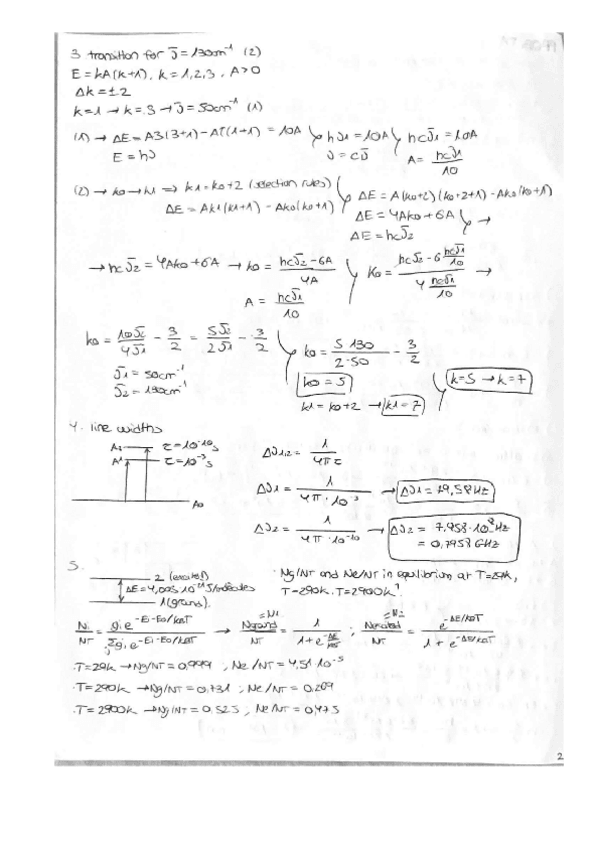 3. transition for ν̄=130cm⁻¹ (2)
E = kA(k+1), k=1,2,3, A>0
Δk=±2
k=1 → k=3 → ν̄=50cm⁻¹ (1)
(1) → ΔE = A3(3+1) - A1(1+1) = 10A
E = hν
hν1 = 10A
ν = cν̄
hcν̄1 = 10A
A = hcν̄1/10
(2) → k0 → k1 ⇒ k1 = k0+2 (selection rules)
ΔE = Ak1(k1+1) - Ak0(k0+1)
ΔE = A(k0+2)(k0+2+1) - Ak0(k0+1)
ΔE = 4Ak0+6A →
ΔE = hcν̄2
→ hcν̄2 = 4Ak0+6A → k0 = (hcν̄2-6A)/4A
A = hcν̄1/10
k0 = (hcν̄2-6 hcν̄1/10)/(4 hcν̄1/10) →
k0 = 10ν̄2/4ν̄1 - 3/2 = 5ν̄2/2ν̄1 - 3/2
ν̄1 = 50cm⁻¹
ν̄2 = 130cm⁻¹
k0 = 5·130/2·50 - 3/2
k0 = 5
k1 = k0+2 → k1=7
k=5 → k=7
4. line widths
A2 τ=10⁻¹⁰s
A1 τ=10⁻³s
A0
Δν1,2 = 1/4πτ
Δν1 = 1/(4π·10⁻³) → Δν1 = 79,58Hz
Δν2 = 1/(4π·10⁻¹⁰) → Δν2 = 7,958·10⁸Hz
= 0,7958 GHz
5.
2 (excited)
ΔE=4,005·10⁻²¹J/molecules
1 (ground).
· Ng/NT and Ne/NT in equilibrium at T=29k,
T=290k, T=2900k.
Ni/NT = gi e^(-Ei-E0/kBT)/Σj gi e^(-Ei-E0/kBT) → Nground/NT = 1/(1+e^(-ΔE/kBT)) ; Nexcited/NT = e^(-ΔE/kBT)/(1+e^(-ΔE/kBT))
·T=29k → Ng/NT = 0,999 ; Ne/NT = 4,51·10⁻⁵
·T=290k → Ng/NT = 0,731 ; Ne/NT = 0,269
·T=2900k → Ng/NT = 0,525 ; Ne/NT = 0,475
2